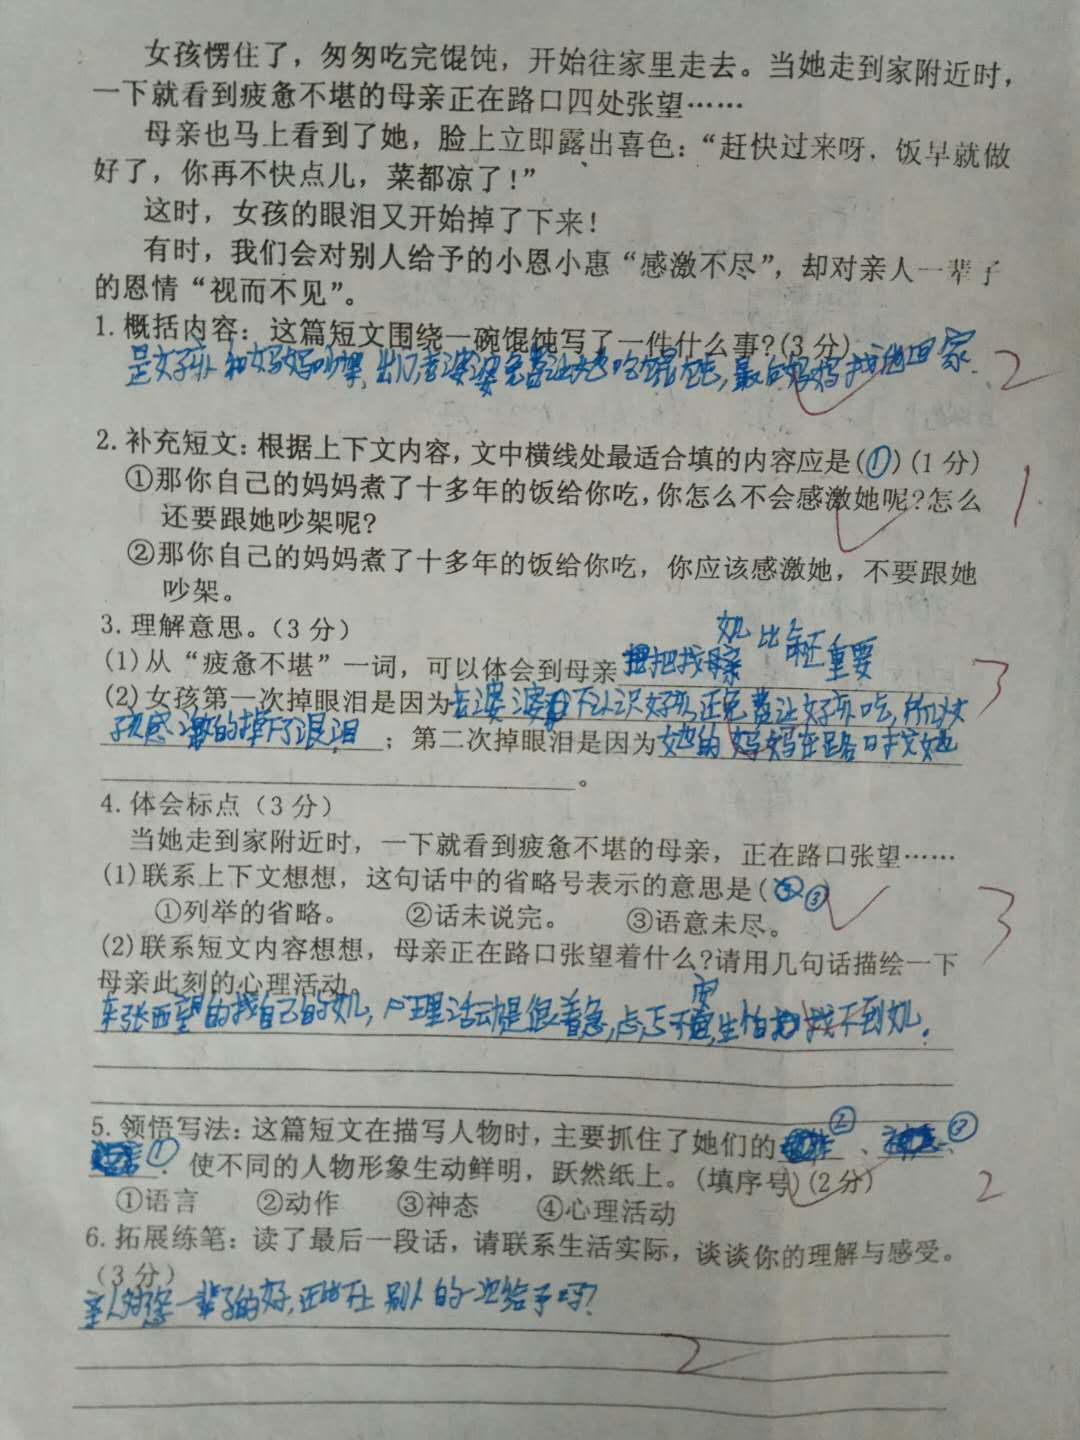 女孩愣住了，匆匆吃完馄饨，开始往家里走去。当她走到家附近时，
一下就看到疲惫不堪的母亲正在路口四处张望……
母亲也马上看到了她，脸上立即露出喜色：“赶快过来呀，饭早就做
好了，你再不快点儿，菜都凉了！”
这时，女孩的眼泪又开始掉了下来！
有时，我们会对别人给予的小恩小惠“感激不尽”，却对亲人一辈子
的恩情“视而不见”。
1.概括内容：这篇短文围绕一碗馄饨写了一件什么事?(3分)
是女孩和妈妈吵架,出门老婆婆免费让她吃馄饨,最后妈妈找她回家 2
2.补充短文：根据上下文内容，文中横线处最适合填的内容应是(①)(1分)
①那你自己的妈妈煮了十多年的饭给你吃，你怎么不会感激她呢?怎么
还要跟她吵架呢? 1
②那你自己的妈妈煮了十多年的饭给你吃，你应该感激她，不要跟她
吵架。
3.理解意思。(3分)
(1)从“疲惫不堪”一词，可以体会到母亲把找 比 还重要
(2)女孩第一次掉眼泪是因为老婆婆不认识女孩,还免费让女孩吃,所以女 3
孩感激的掉下了眼泪；第二次掉眼泪是因为她的妈妈在路口找她
。
4.体会标点(3分)
当她走到家附近时，一下就看到疲惫不堪的母亲，正在路口张望……
(1)联系上下文想想，这句话中的省略号表示的意思是(③) 3
①列举的省略。 ②话未说完。 ③语意未尽。
(2)联系短文内容想想，母亲正在路口张望着什么?请用几句话描绘一下
母亲此刻的心理活动。
东张西望的找自己的女儿,心理活动是很着急,忐忑不安,生怕找不到女儿.
5.领悟写法：这篇短文在描写人物时，主要抓住了她们的②、③、
①.使不同的人物形象生动鲜明，跃然纸上。(填序号)(2分)
①语言 ②动作 ③神态 ④心理活动 2
6.拓展练笔：读了最后一段话，请联系生活实际，谈谈你的理解与感受。
(3分)
亲人对你一辈子的好,还比不上别人的一次给予吗?
2